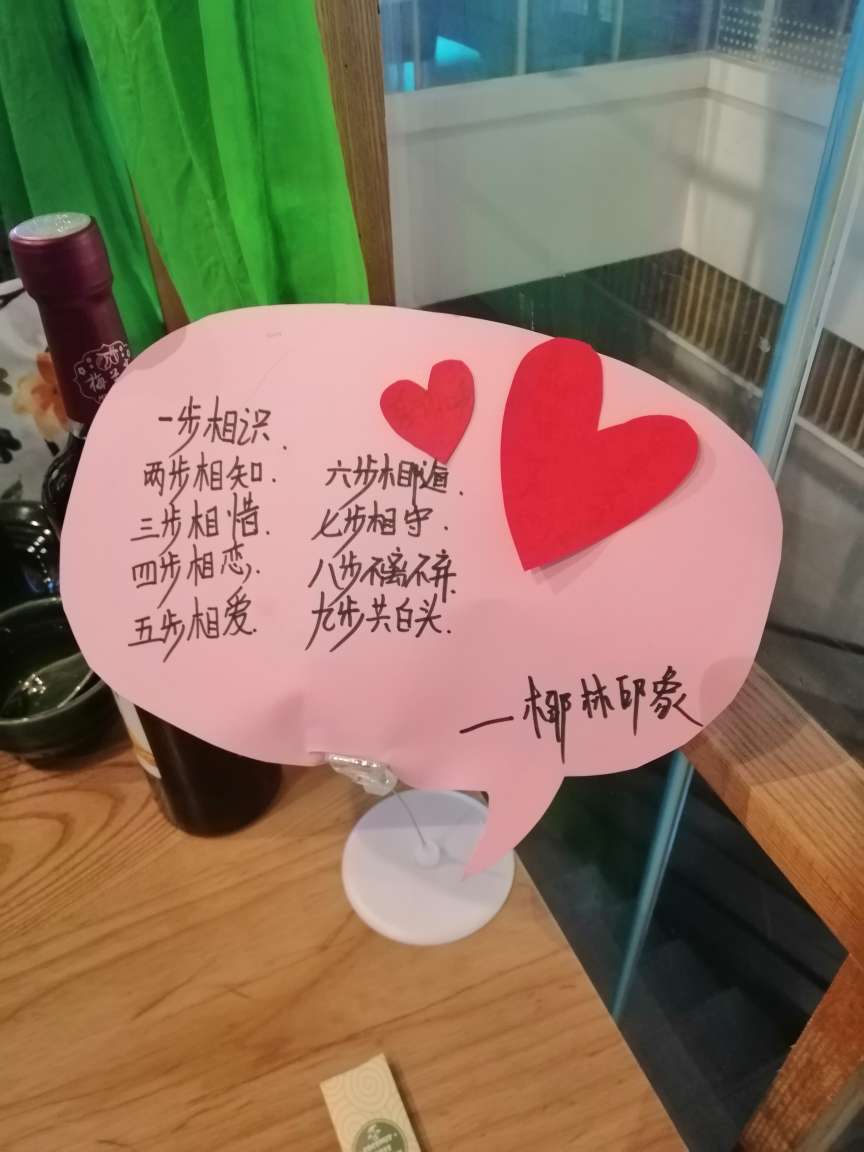 一步相识.
两步相知.
三步相惜.
四步相恋.
五步相爱.
六步相随.
七步相守.
八步不离不弃.
九步共白头.
—椰林印象
COCONUT